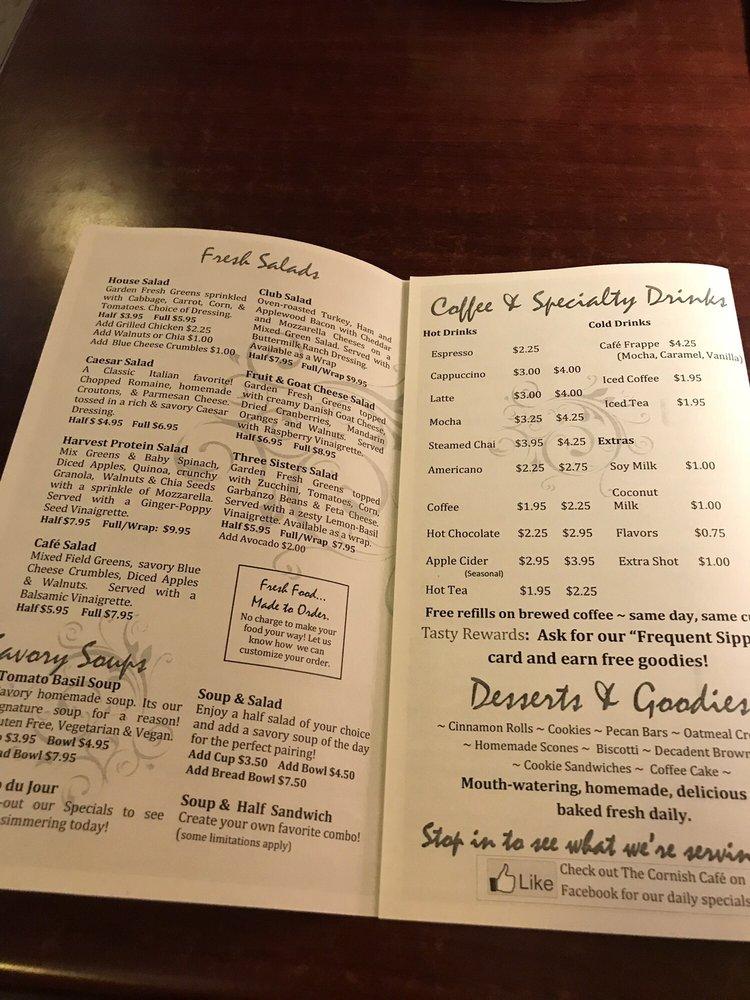 Fresh Salads
House Salad
Garden Fresh Greens sprinkled
with Cabbage, Carrot, Corn, &
Tomatoes. Choice of Dressing.
Half $3.95 Full $5.95
Add Grilled Chicken $2.25
Add Walnuts or Chia $1.00
Add Blue Cheese Crumbles $1.00
Caesar Salad
A Classic Italian favorite!
Chopped Romaine, homemade
Croutons, & Parmesan Cheese,
tossed in a rich & savory Caesar
Dressing.
Half $ $4.95 Full $6.95
Harvest Protein Salad
Mix Greens & Baby Spinach,
Diced Apples, Quinoa, crunchy
Granola, Walnuts & Chia Seeds
with a sprinkle of Mozzarella.
Served with a Ginger-Poppy
Seed Vinaigrette.
Half $7.95 Full/Wrap: $9.95
Café Salad
Mixed Field Greens, savory Blue
Cheese Crumbles, Diced Apples
& Walnuts. Served with a
Balsamic Vinaigrette.
Half $5.95 Full $7.95
Club Salad
Oven-roasted Turkey, Ham and
Applewood Bacon with Cheddar
and Mozzarella Cheeses on a
Mixed Green Salad. Served with
Buttermilk Ranch Dressing.
Available as a Wrap
Half $7.95 Full/Wrap $9.95
Fruit & Goat Cheese Salad
Garden Fresh Greens topped
with creamy Danish Goat Cheese,
Dried Cranberries, Mandarin
Oranges and Walnuts. Served
with Raspberry Vinaigrette.
Half $6.95 Full $8.95
Three Sisters Salad
Garden Fresh Greens topped
with Zucchini, Tomatoes, Corn,
Garbanzo Beans & Feta Cheese.
Served with a zesty Lemon-Basil
Vinaigrette. Available as a wrap.
Half $5.95 Full/Wrap $7.95
Add Avocado $2.00
Fresh Food...
Made to Order.
No charge to make your
food your way! Let us
know how we can
customize your order.
avory Soups
Tomato Basil Soup
avory homemade soup. Its our
gnature soup for a reason!
uten Free, Vegetarian & Vegan.
$3.95 Bowl $4.95
ad Bowl $7.95
du Jour
-out our Specials to see
simmering today!
Soup & Salad
Enjoy a half salad of your choice
and add a savory soup of the day
for the perfect pairing!
Add Cup $3.50 Add Bowl $4.50
Add Bread Bowl $7.50
Soup & Half Sandwich
Create your own favorite combo!
(some limitations apply)
Coffee & Specialty Drinks
Hot Drinks
Espresso $2.25
Cappuccino $3.00 $4.00
Latte $3.00 $4.00
Mocha $3.25 $4.25
Steamed Chai $3.95 $4.25
Americano $2.25 $2.75
Coffee $1.95 $2.25
Hot Chocolate $2.25 $2.95
Apple Cider $2.95 $3.95
(Seasonal)
Hot Tea $1.95 $2.25
Cold Drinks
Café Frappe $4.25
(Mocha, Caramel, Vanilla)
Iced Coffee $1.95
Iced Tea $1.95
Extras
Soy Milk $1.00
Coconut
Milk $1.00
Flavors $0.75
Extra Shot $1.00
Free refills on brewed coffee ~ same day, same cu
Tasty Rewards: Ask for our "Frequent Sipp
card and earn free goodies!
Desserts & Goodies
~ Cinnamon Rolls ~ Cookies ~ Pecan Bars ~ Oatmeal Cre
~ Homemade Scones ~ Biscotti ~ Decadent Brown
~ Cookie Sandwiches ~ Coffee Cake ~
Mouth-watering, homemade, delicious
baked fresh daily.
Stop in to see what we're servin
Like
Check out The Cornish Café on
Facebook for our daily specials